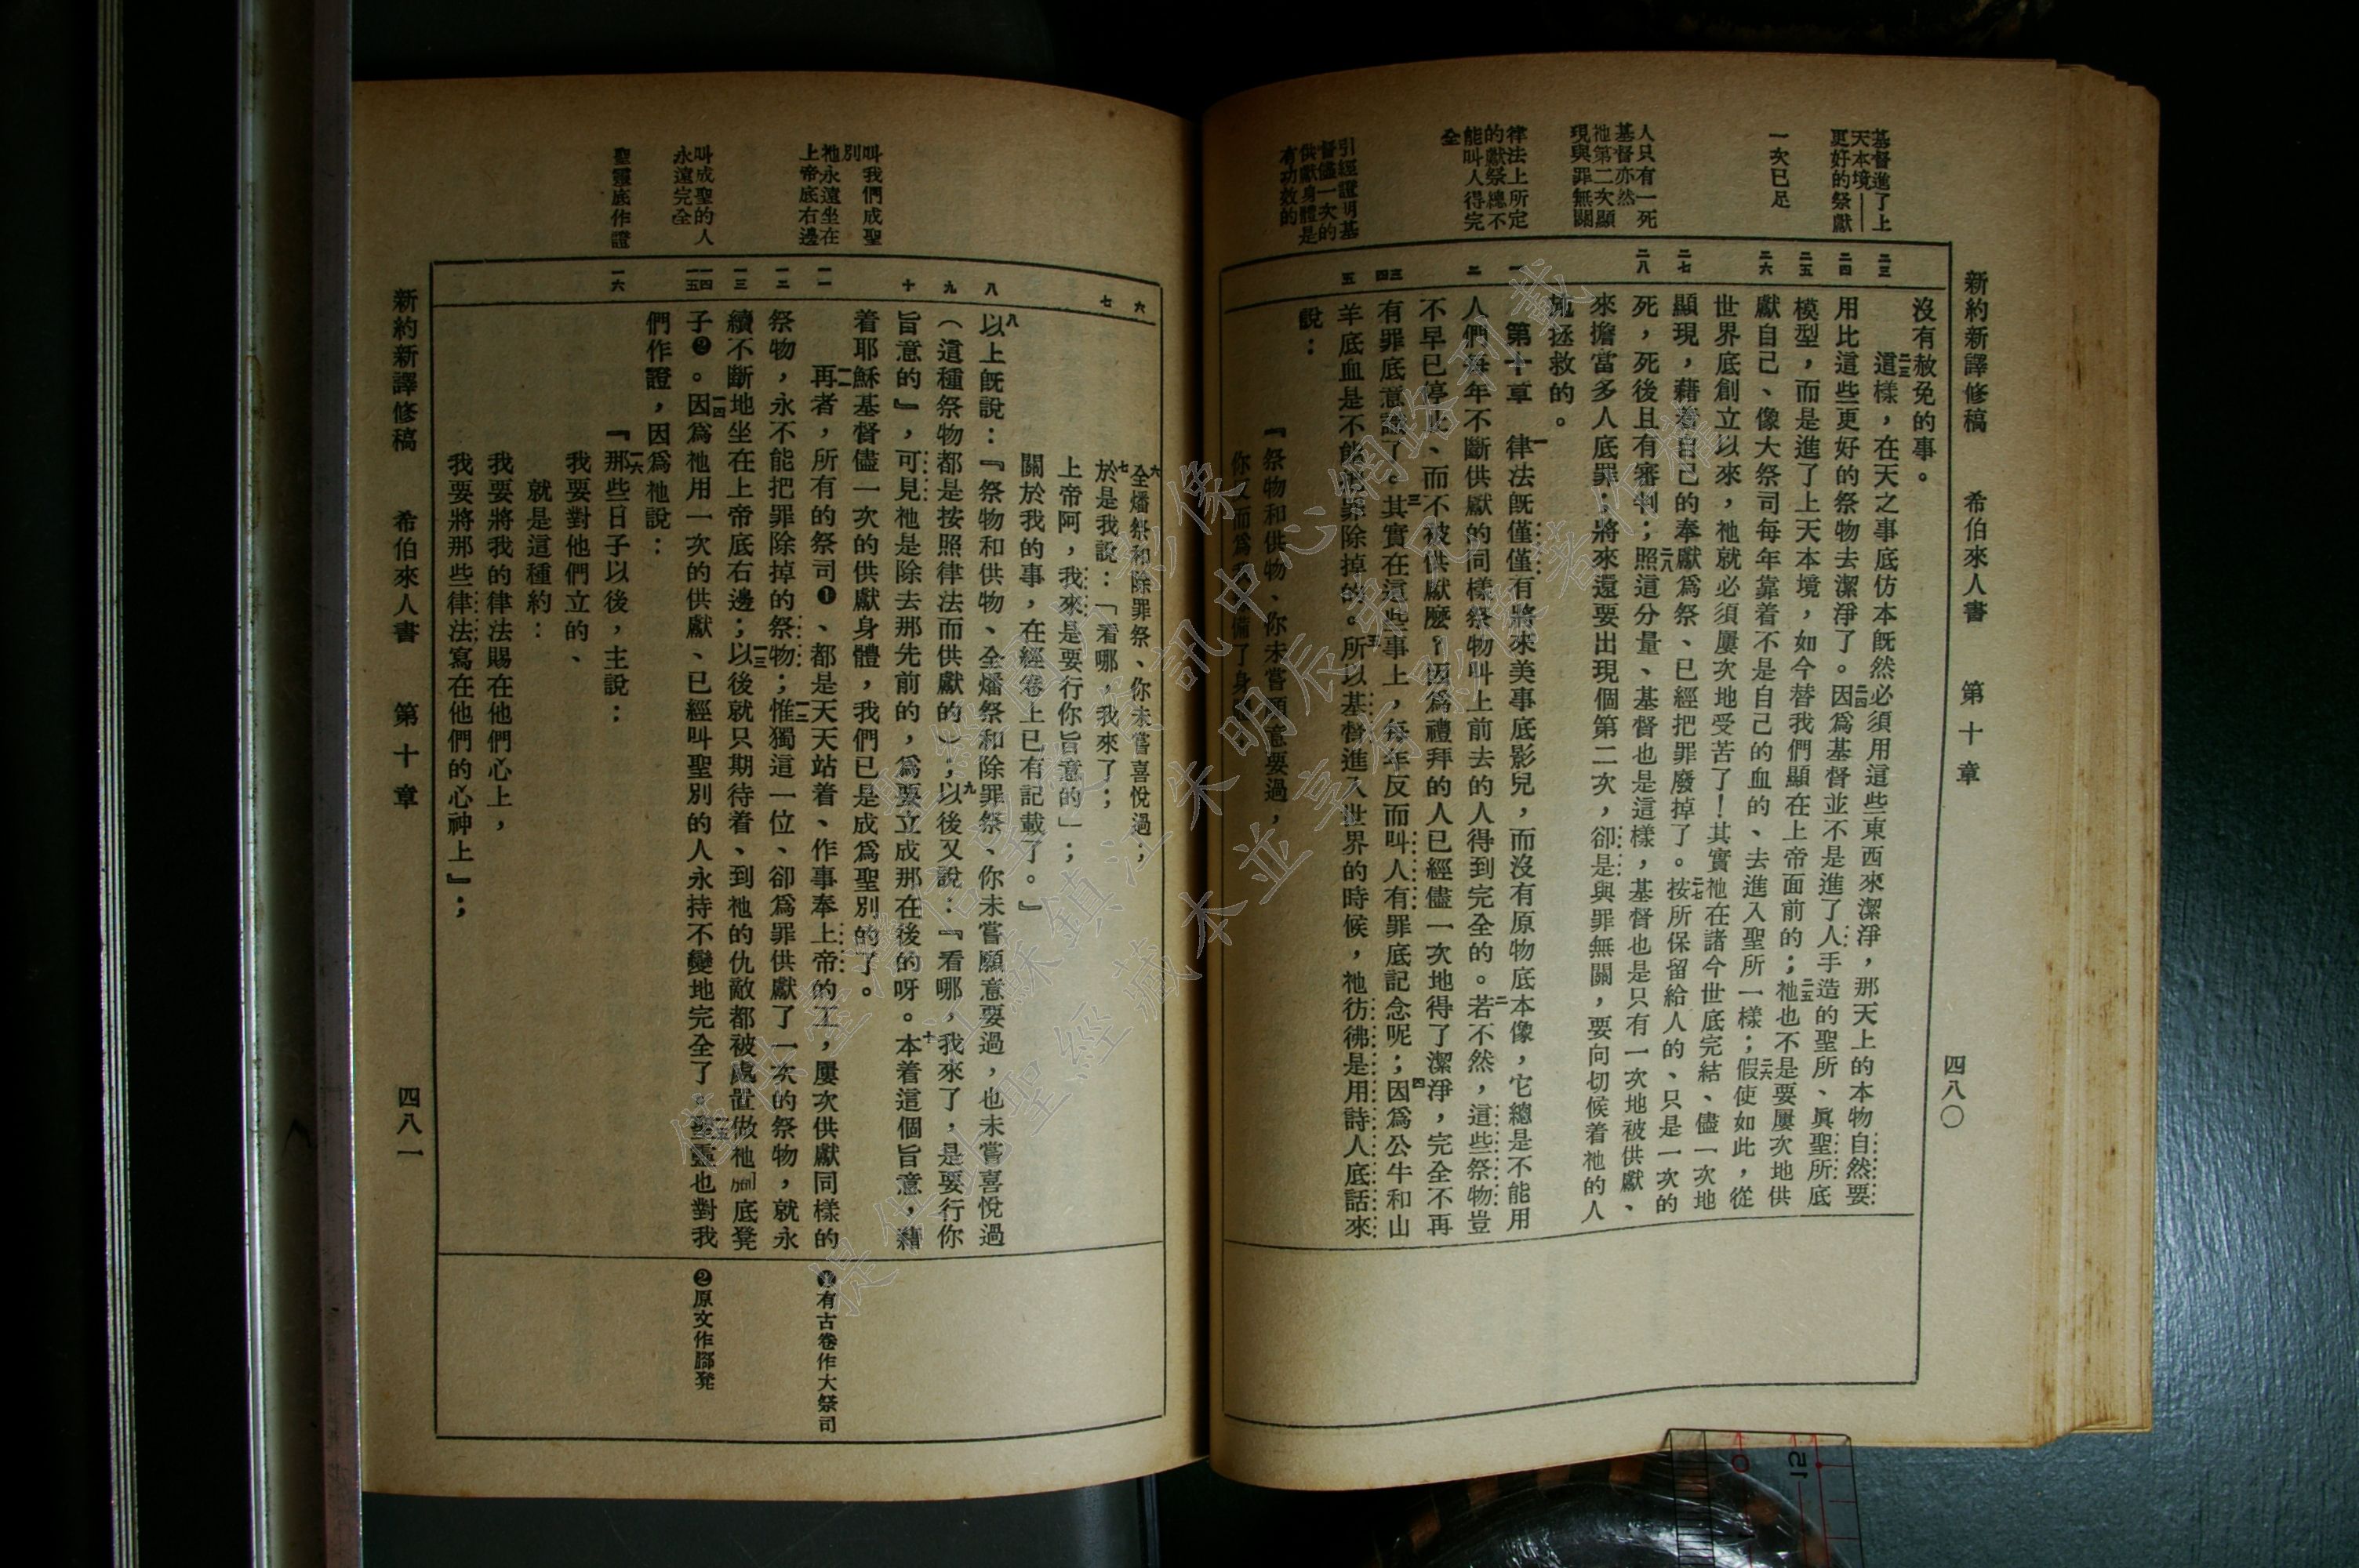 新約新譯修稿　希伯來人書　第十章　四八〇
基督進了上
天本境——
更好的祭獻
一次已足
人只有一死
基督亦然
祂第二次顯
現與罪無關
律法上所定
的獻祭總不
能叫人得完
全
引經證明基
督儘一次的
供獻身體是
有功效的
二三
二四
二五
二六
二七
二八
一
二
三
四
五
沒有赦免的事。
二三這樣，在天之事底仿本旣然必須用這些東西來潔淨，那天上的本物自然要
用比這些更好的祭物去潔淨了。二四因爲基督並不是進了人手造的聖所、眞聖所底
模型，而是進了上天本境，如今替我們顯在上帝面前的；二五祂也不是要屢次地供
獻自己、像大祭司每年靠着不是自己的血的、去進入聖所一樣；二六假使如此，從
世界底創立以來，祂就必須屢次地受苦了！其實二七祂在諸今世底完結、儘一次地
顯現，藉着自己的奉獻爲祭、已經把罪廢掉了。按所保留給人的、只是一次的
死，死後且有審判；二八照這分量、基督也是這樣，基督也是只有一次地被供獻、
來擔當多人底罪；將來還要出現個第二次，卻是與罪無關，要向切候着祂的人
施拯救的。
第十章　一律法旣僅僅有將來美事底影兒，而沒有原物底本像，它總是不能用
人們每年不斷供獻的同樣祭物叫上前去的人得到完全的。二若不然，這些祭物豈
不早已停止、而不被供獻麽？因爲禮拜的人已經儘一次地得了潔淨，完全不再
有罪底意識了。三其實在這些事上，每年反而叫人有罪底記念呢；四因爲公牛和山
羊底血是不能把罪除掉的。五所以基督進入世界的時候，祂彷彿是用詩人底話來
說：
『祭物和供物、你未嘗願意要過，
你反而爲我備了身
新約新譯修稿　希伯來人書　第十章　四八一
叫我們成聖
別
祂永遠坐在
上帝底右邊
叫成聖的人
永遠完全
聖靈底作證
六
七
八
九
十
一一
一二
一三
一四
一五
一六
六全燔祭和除罪祭、你未嘗喜悅過；
七於是我說：「看哪，我來了；
上帝阿，我來是要行你旨意的」；
關於我的事，在經卷上已有記載了。』
八以上旣說：『祭物和供物、全燔祭和除罪祭、你未嘗願意要過，也未嘗喜悅過
（這種祭物都是按照律法而供獻的）；九以後又說：『看哪，我來了，是要行你
旨意的』，可見祂是除去那先前的，爲要立成那在後的呀。十本着這個旨意，藉
着耶穌基督儘一次的供獻身體，我們已是成爲聖別的了。
一一再者，所有的祭司❶、都是天天站着、作事奉上帝的工，屢次供獻同樣的
祭物，永不能把罪除掉的祭物；一二惟獨這一位、卻爲罪供獻了一次的祭物，就永
續不斷地坐在上帝底右邊；一三以後就只期待着、到祂的仇敵都被處置做祂脚底凳
子❷。一四因爲祂用一次的供獻、已經叫聖別的人永持不變地完全了。一五聖靈也對我
們作證，因爲祂說：
一六『那些日子以後，主說：
我要對他們立的、
就是這種約：
我要將我的律法賜在他們心上，
我要將那些律法寫在他們的心神上』；
❶有古卷作大祭司
❷原文作腳凳